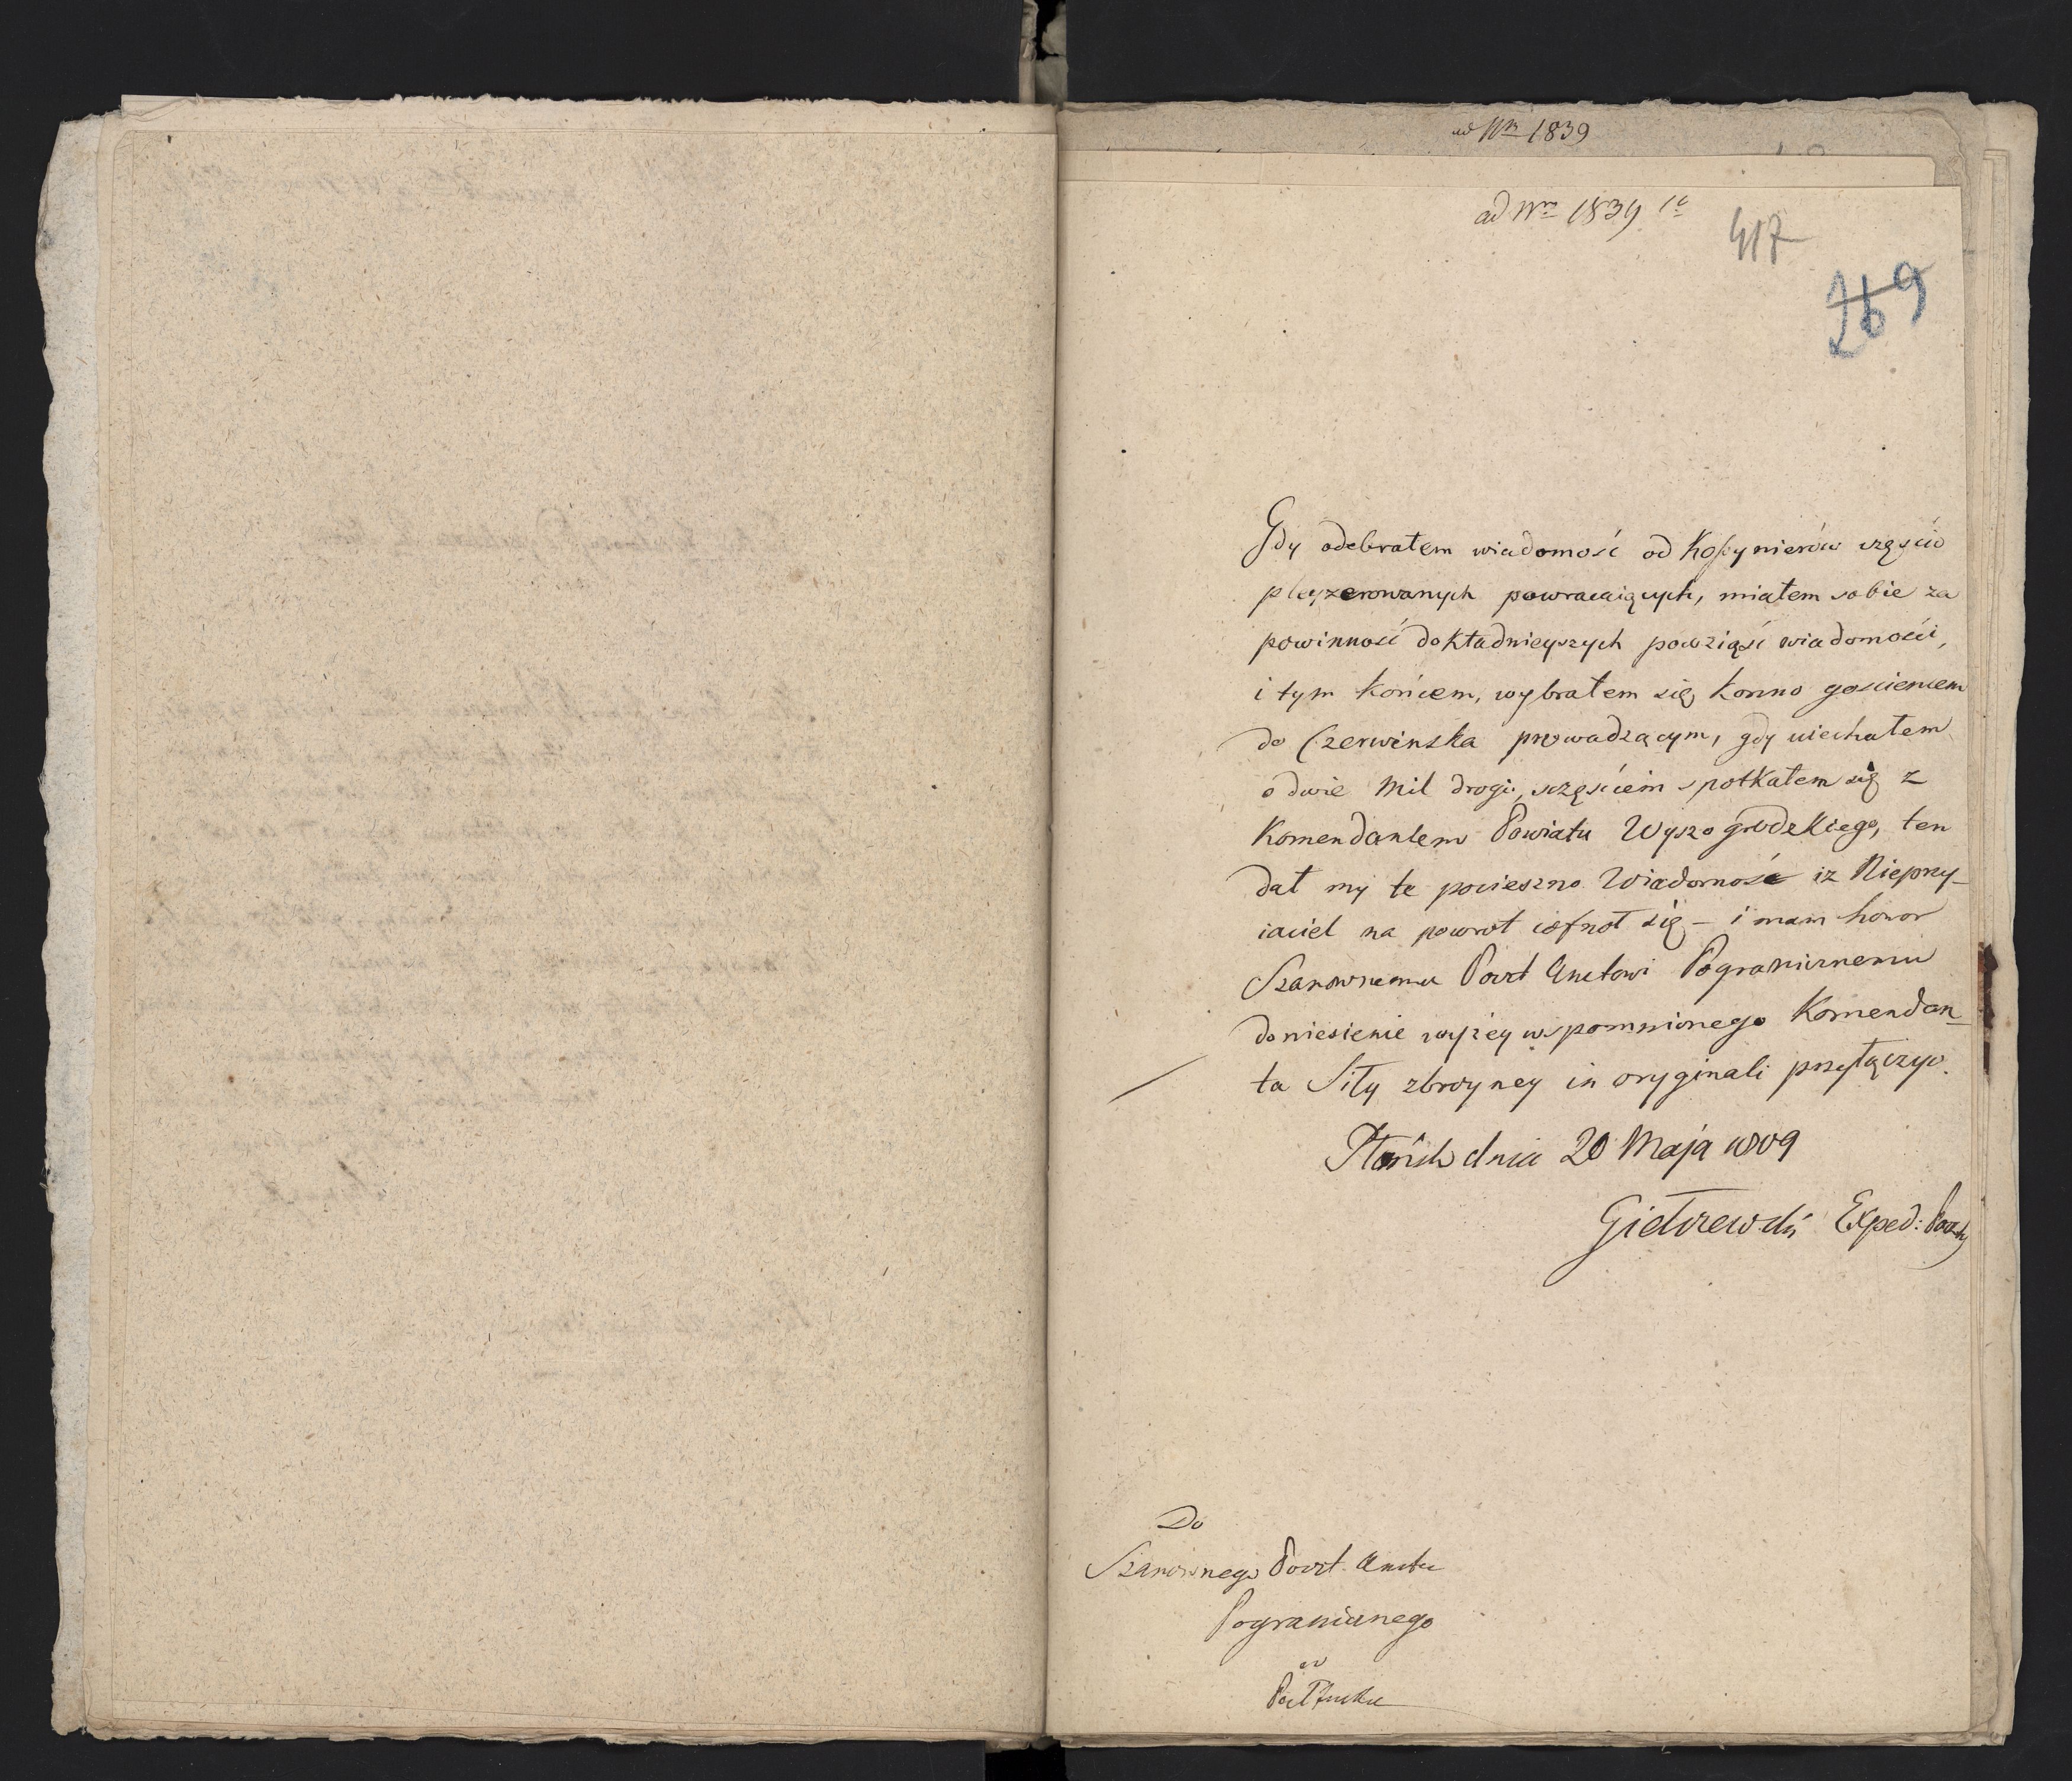 ad Nro 1839
ad Nro 1839
417
269
Gdy odebrałem wiadomość od Kossynierów częścio
pleyzerowanych powracaiących, miałem sobie za
powinność dokładnieyszych powziąść wiadomości,
i tym końcem, wybrałem się konno gościencem
do Czerwinska prowadzącym, gdy uiechałem
o dwie Mil drogi, szczęściem spotkałem się z
Komendantem Powiatu Wyszogrodzkiego, ten
dał my te pocieszno Wiadomość iz Nieprzy-
iaciel na powrot cofnoł się - i mam honor
Szanownemu Poczt Amtowi Pogranicznemu
doniesienie wyżey wspomnionego Komendan-
ta Siły zbroyney in oryginali przyłączyc.
Płońsk dnia 20 Maja 1809
Exped: Poczty
Do
Szanownego Poczt Amtu
Pogranicznego
w
Pułtusku